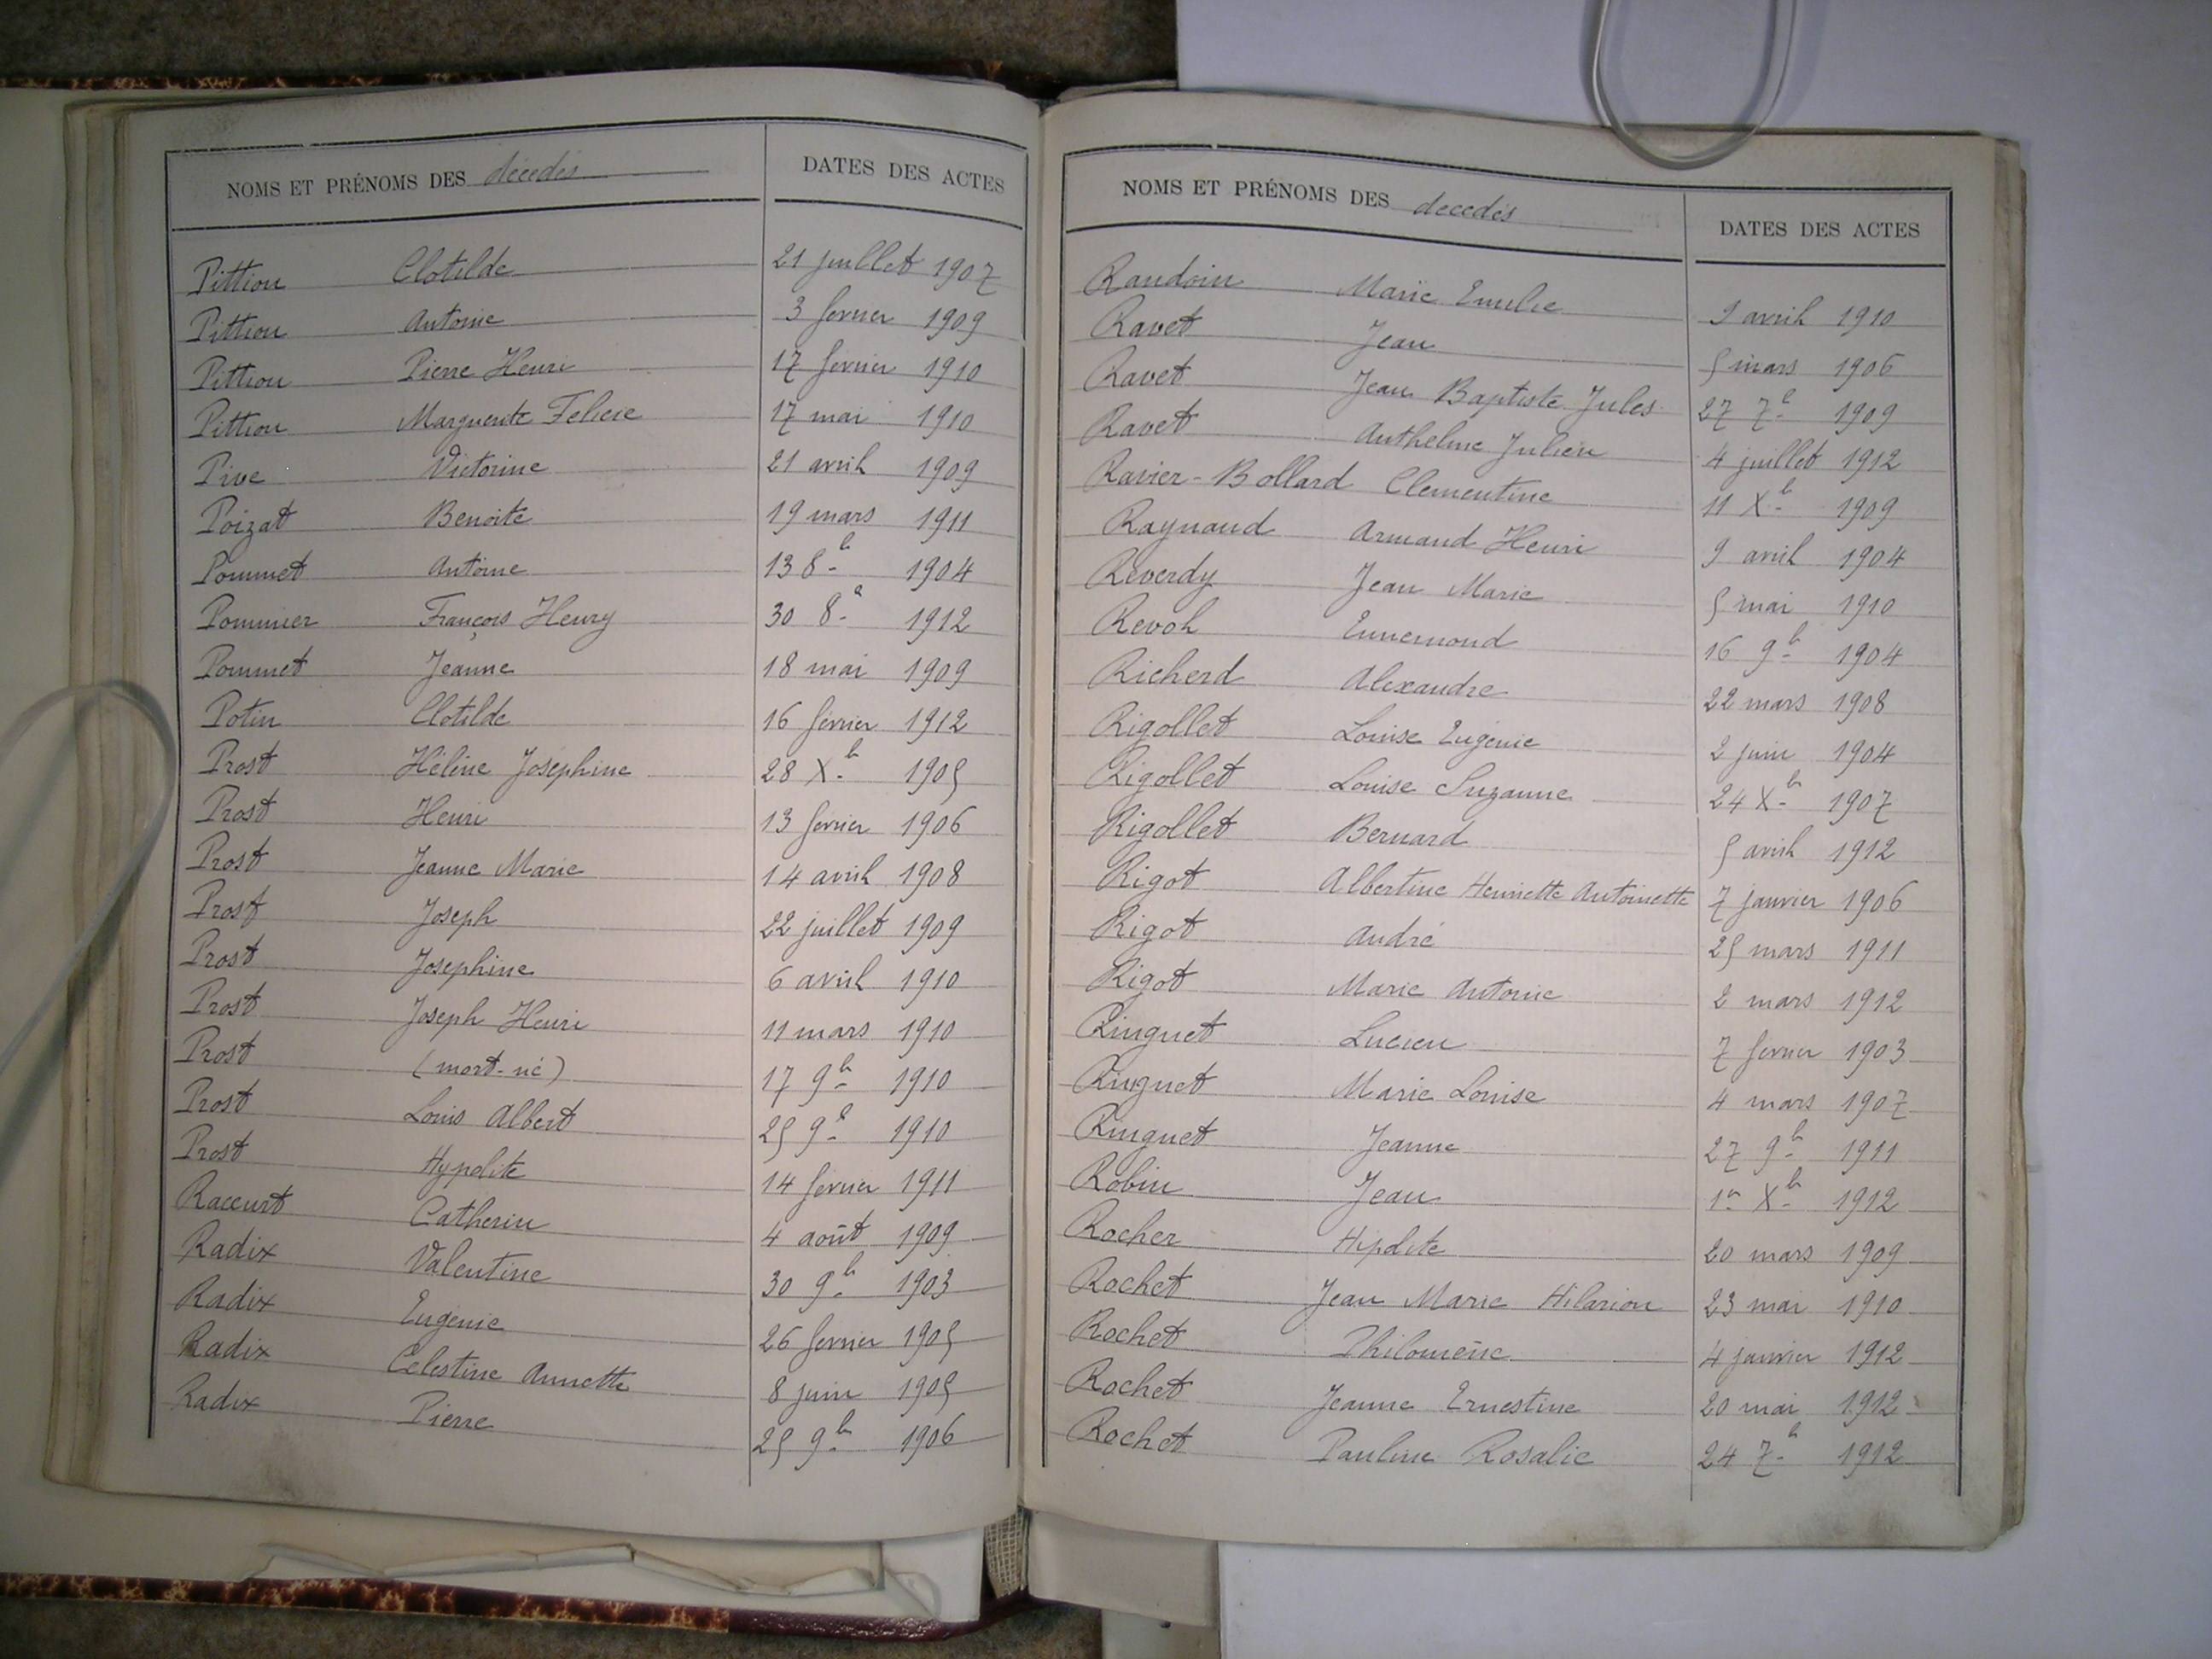 NOMS ET PRÉNOMS DES décédés DATES DES ACTES
Pittion Clotilde 21 juillet 1907
Pittion Antonie 3 fevrier 1909
Pittion Pierre Henri 17 fevrier 1910
Pittion Marguerite Felicie 17 mai 1910
Pive Victorine 21 avril 1909
Poizat Benoite 19 mars 1911
Pommet Antoine 13 8b 1904
Pommier François Henry 30 8b 1912
Pommet Jeanne 18 mai 1909
Potin Clotilde 16 février 1912
Prost Hélène Joséphine 28 Xb 1905
Prost Henri 13 fevrier 1906
Prost Jeanne Marie 14 avril 1908
Prost Joseph 22 juillet 1909
Prost Josephine 6 avril 1910
Prost Joseph Henri 11 mars 1910
Prost (mort-né) 17 9b 1910
Prost Louis Albert 25 9b 1910
Prost Hypolite 14 fevrier 1911
Raccurt Catherin 4 août 1909
Radix Valentine 30 9b 1903
Radix Eugenie 26 fevrier 1905
Radix Celestine Annette 8 juin 1905
Radix Pierre 25 9b 1906
NOMS ET PRÉNOMS DES decedés DATES DES ACTES
Raudoin Marie Emilie 9 avril 1910
Ravet Jean 5 mars 1906
Ravet Jean Baptiste Jules 27 7b 1909
Ravet Anthelme Julien 4 juillet 1912
Ravier-Bollard Clementine 11 Xb 1909
Raynaud Armand Henri 9 avril 1904
Reverdy Jean Marie 5 mai 1910
Revol Ennemond 16 9b 1904
Richerd Alexandre 22 mars 1908
Rigollet Louise Eugénie 2 juin 1904
Rigollet Louise Suzanne 24 Xb 1907
Rigollet Bernard 5 avril 1912
Rigot Albertine Henriette Antoinette 7 janvier 1906
Rigot André 25 mars 1911
Rigot Marie Antonie 2 mars 1912
Ringuet Lucien 7 fevrier 1903
Ringuet Marie Louise 4 mars 1907
Ringuet Jeanne 27 9b 1911
Robin Jean 1er Xb 1912
Rocher Hipolite 20 mars 1909
Rochet Jean Marie Hilarion 23 mai 1910
Rochet Philomène 4 janvier 1912
Rochet Jeanne Ernestine 20 mai 1912
Rochet Pauline Rosalie 24 7b 1912